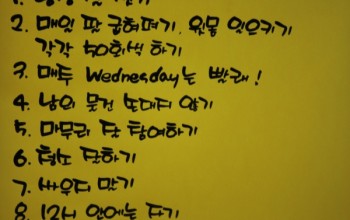 2. 매일 팔 굽혀펴기, 윗몸 잇으키기
각각 50회색 하기
3. 매주 Wednesday는 빨래!
4. 남의 물건 손대지 않기
5. 마무리 다 참여하기
6. 청소 다하기
7. 싸우지 말기
8. 12시 안에는 자기